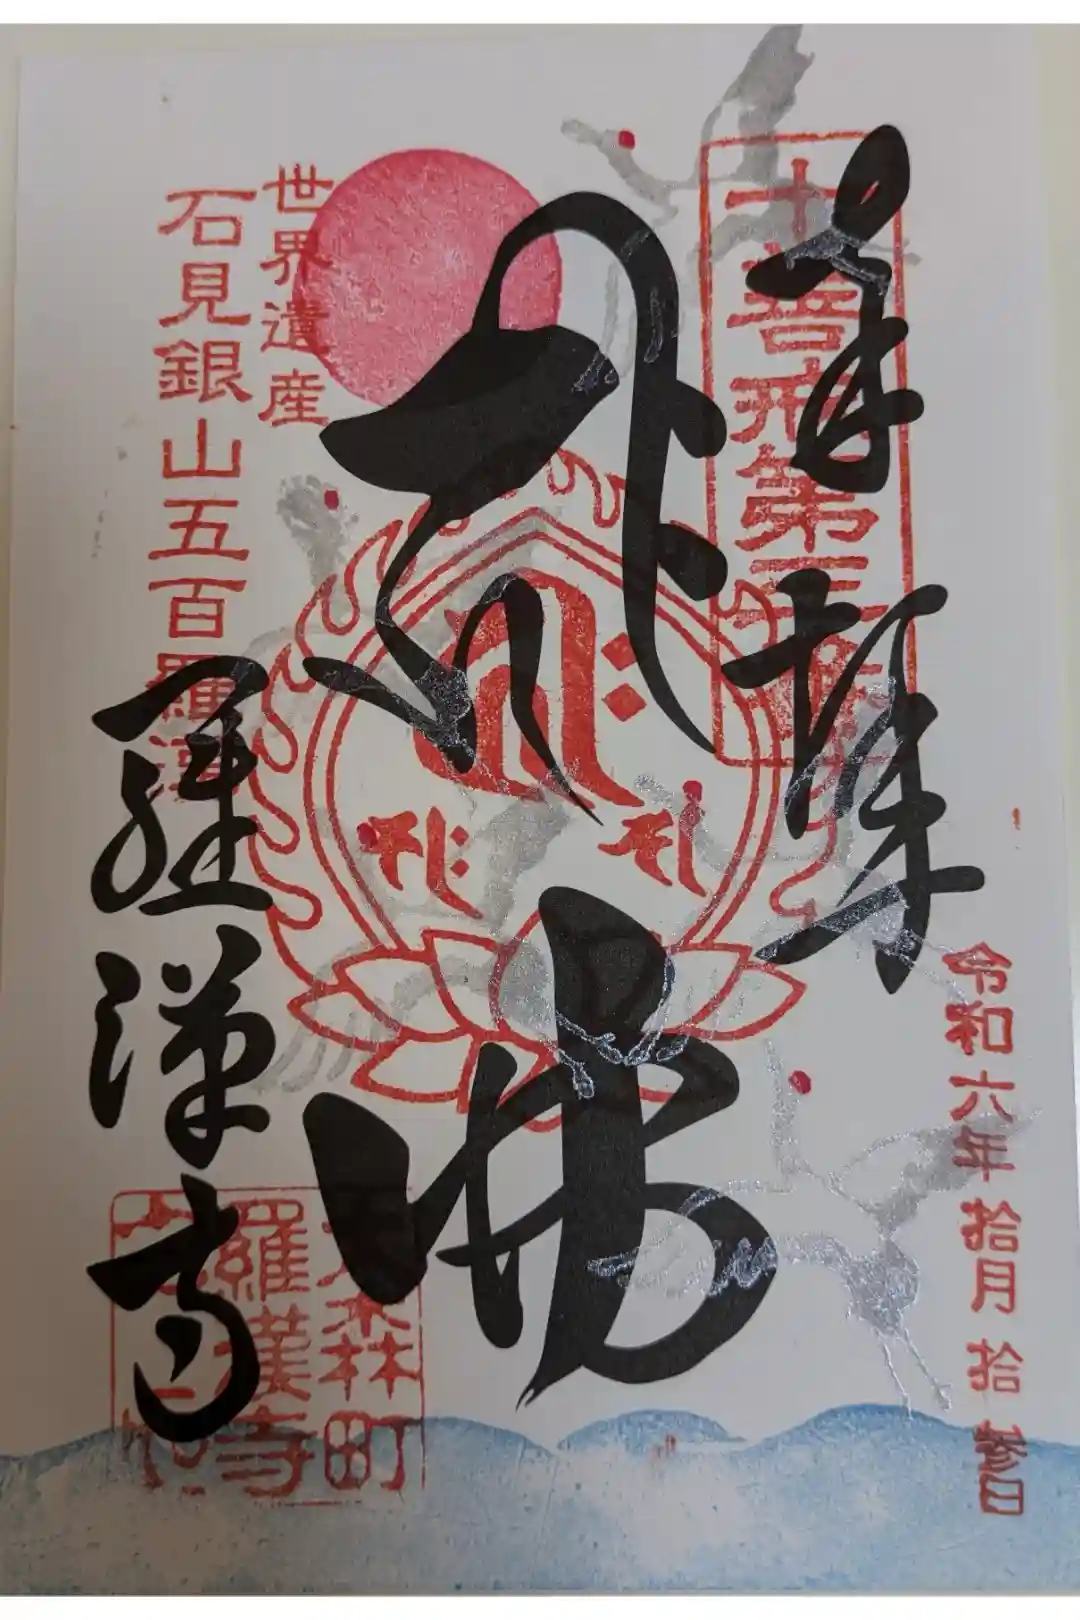 奉拝
十善戒第三番
令和六年拾月拾参日
佛
世界遺産
石見銀山五百羅漢
羅漢寺
大森町
羅漢寺